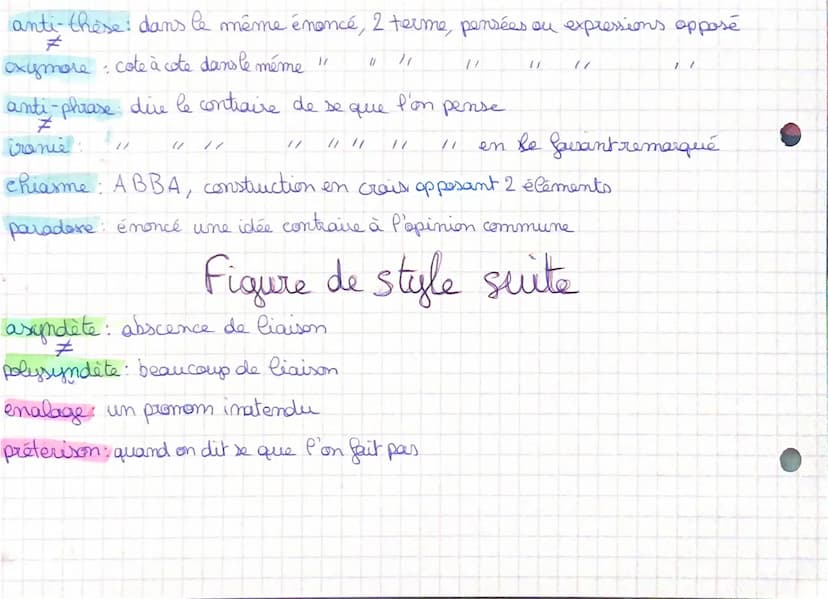 anti-thèse : dans le même énoncé, 2 terme, pensées ou expressions opposé
≠
oxymore : cote à cote dans le même " " " " " " "
anti-phrase : dire le contraire de se que l'on pense
≠
ironie : " " " " " " " " " en le faisant remarqué
chiasme : ABBA, construction en crois opposant 2 éléments
paradoxe : énoncé une idée contraire à l'opinion commune
Figure de style suite
asyndète : abscence de liaison
≠
polysyndète : beaucoup de liaison
enalage : un pronom inatendu
préterison : quand on dit se que l'on fait pas